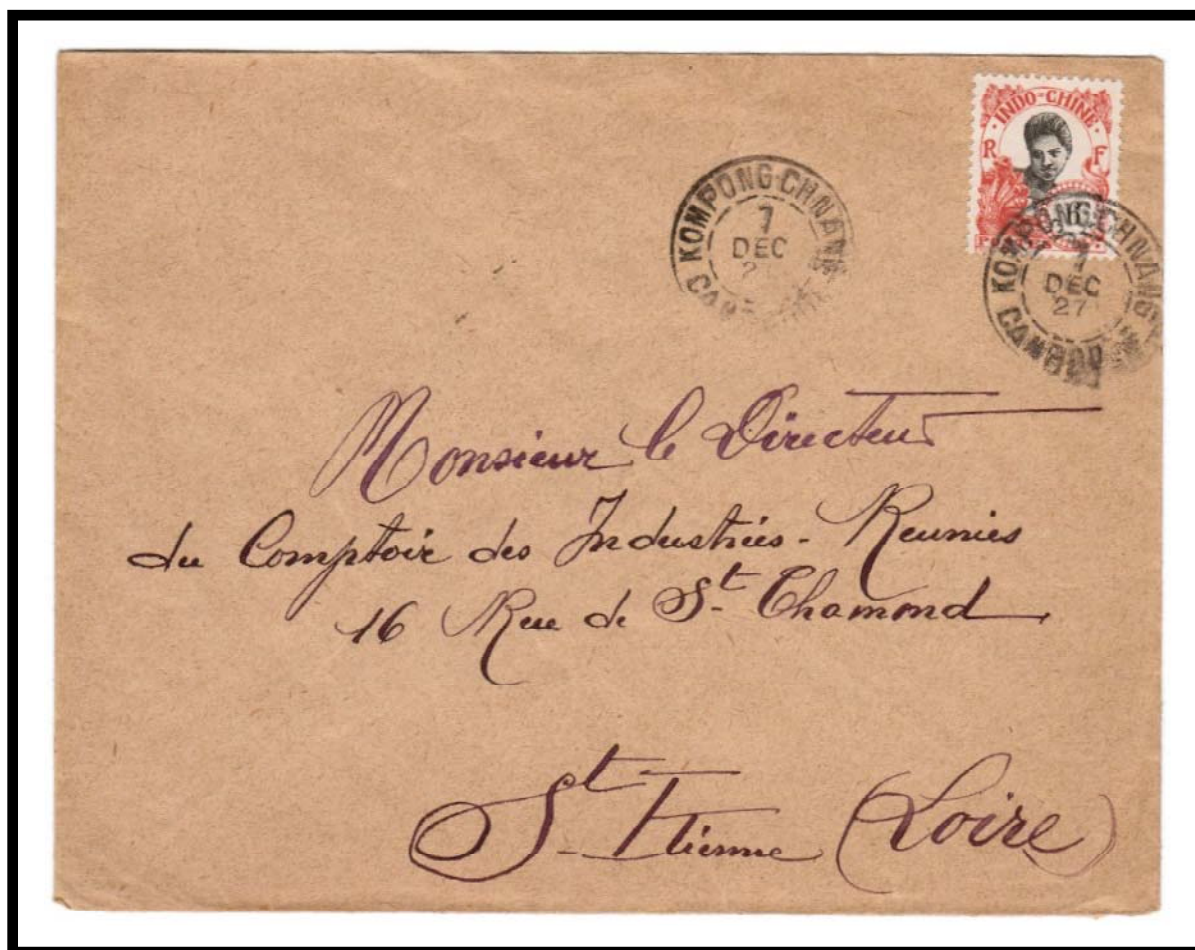 INDO-CHINE
R F
KOMPONG-CHNANG
7
DEC
27
KOMPONG-CHNANG
7
DEC
Monsieur le Directeur
du Comptoir des Industries-Reunies
16 Rue de St. Chamond
St. Etienne (Loire)